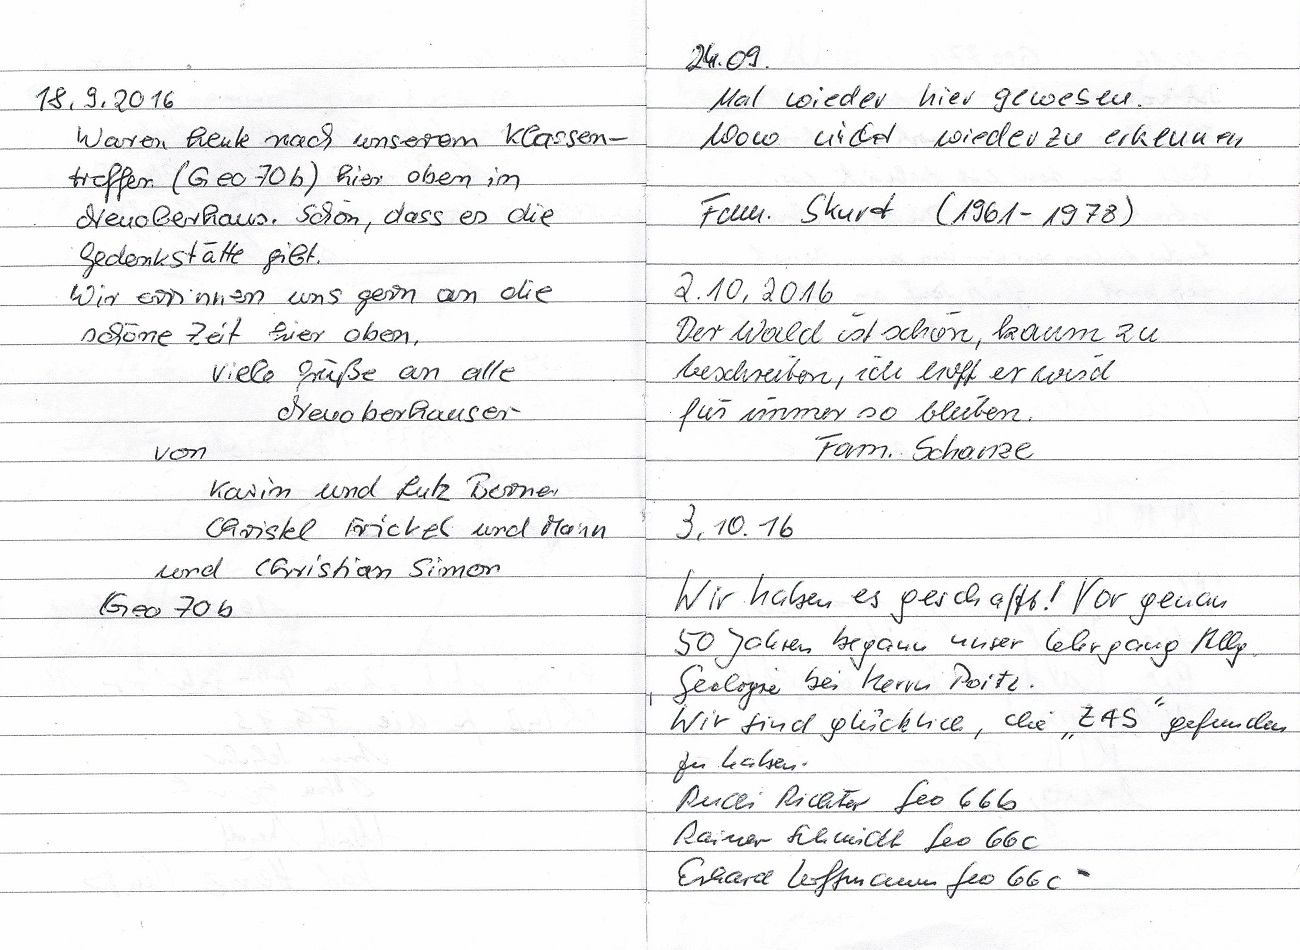 18.9.2016
Waren heute nach unserem Klassen-
treffen (Geo 70b) hier oben im
Neuoberhaus. Schön, dass es die
Gedenkstätte gibt.
Wir erinnern uns gern an die
schöne Zeit hier oben.
Viele Grüße an alle
Neuoberhauser
von
Karin und Lutz
Christel und Mann
und Christian Simon
Geo 70b
24.09.
Mal wieder hier gewesen.
Wow nicht wieder zu erkennen
Fam. Skurdt (1961-1978)
2.10.2016
Der Wald ist schön, kaum zu
beschreiben, ich hoff er wird
für immer so bleiben.
Fam. Schanze
3.10.16
Wir haben es geschafft! Vor genau
50 Jahren begann unser Lehrgang Allg.
Geologie bei Herrn
Wir sind glücklich, die „ZAS“ gefunden
zu haben.
Rudi Richter Geo 66b
Rainer Schmidt Geo 66c
Erhard Hoffmann Geo 66c